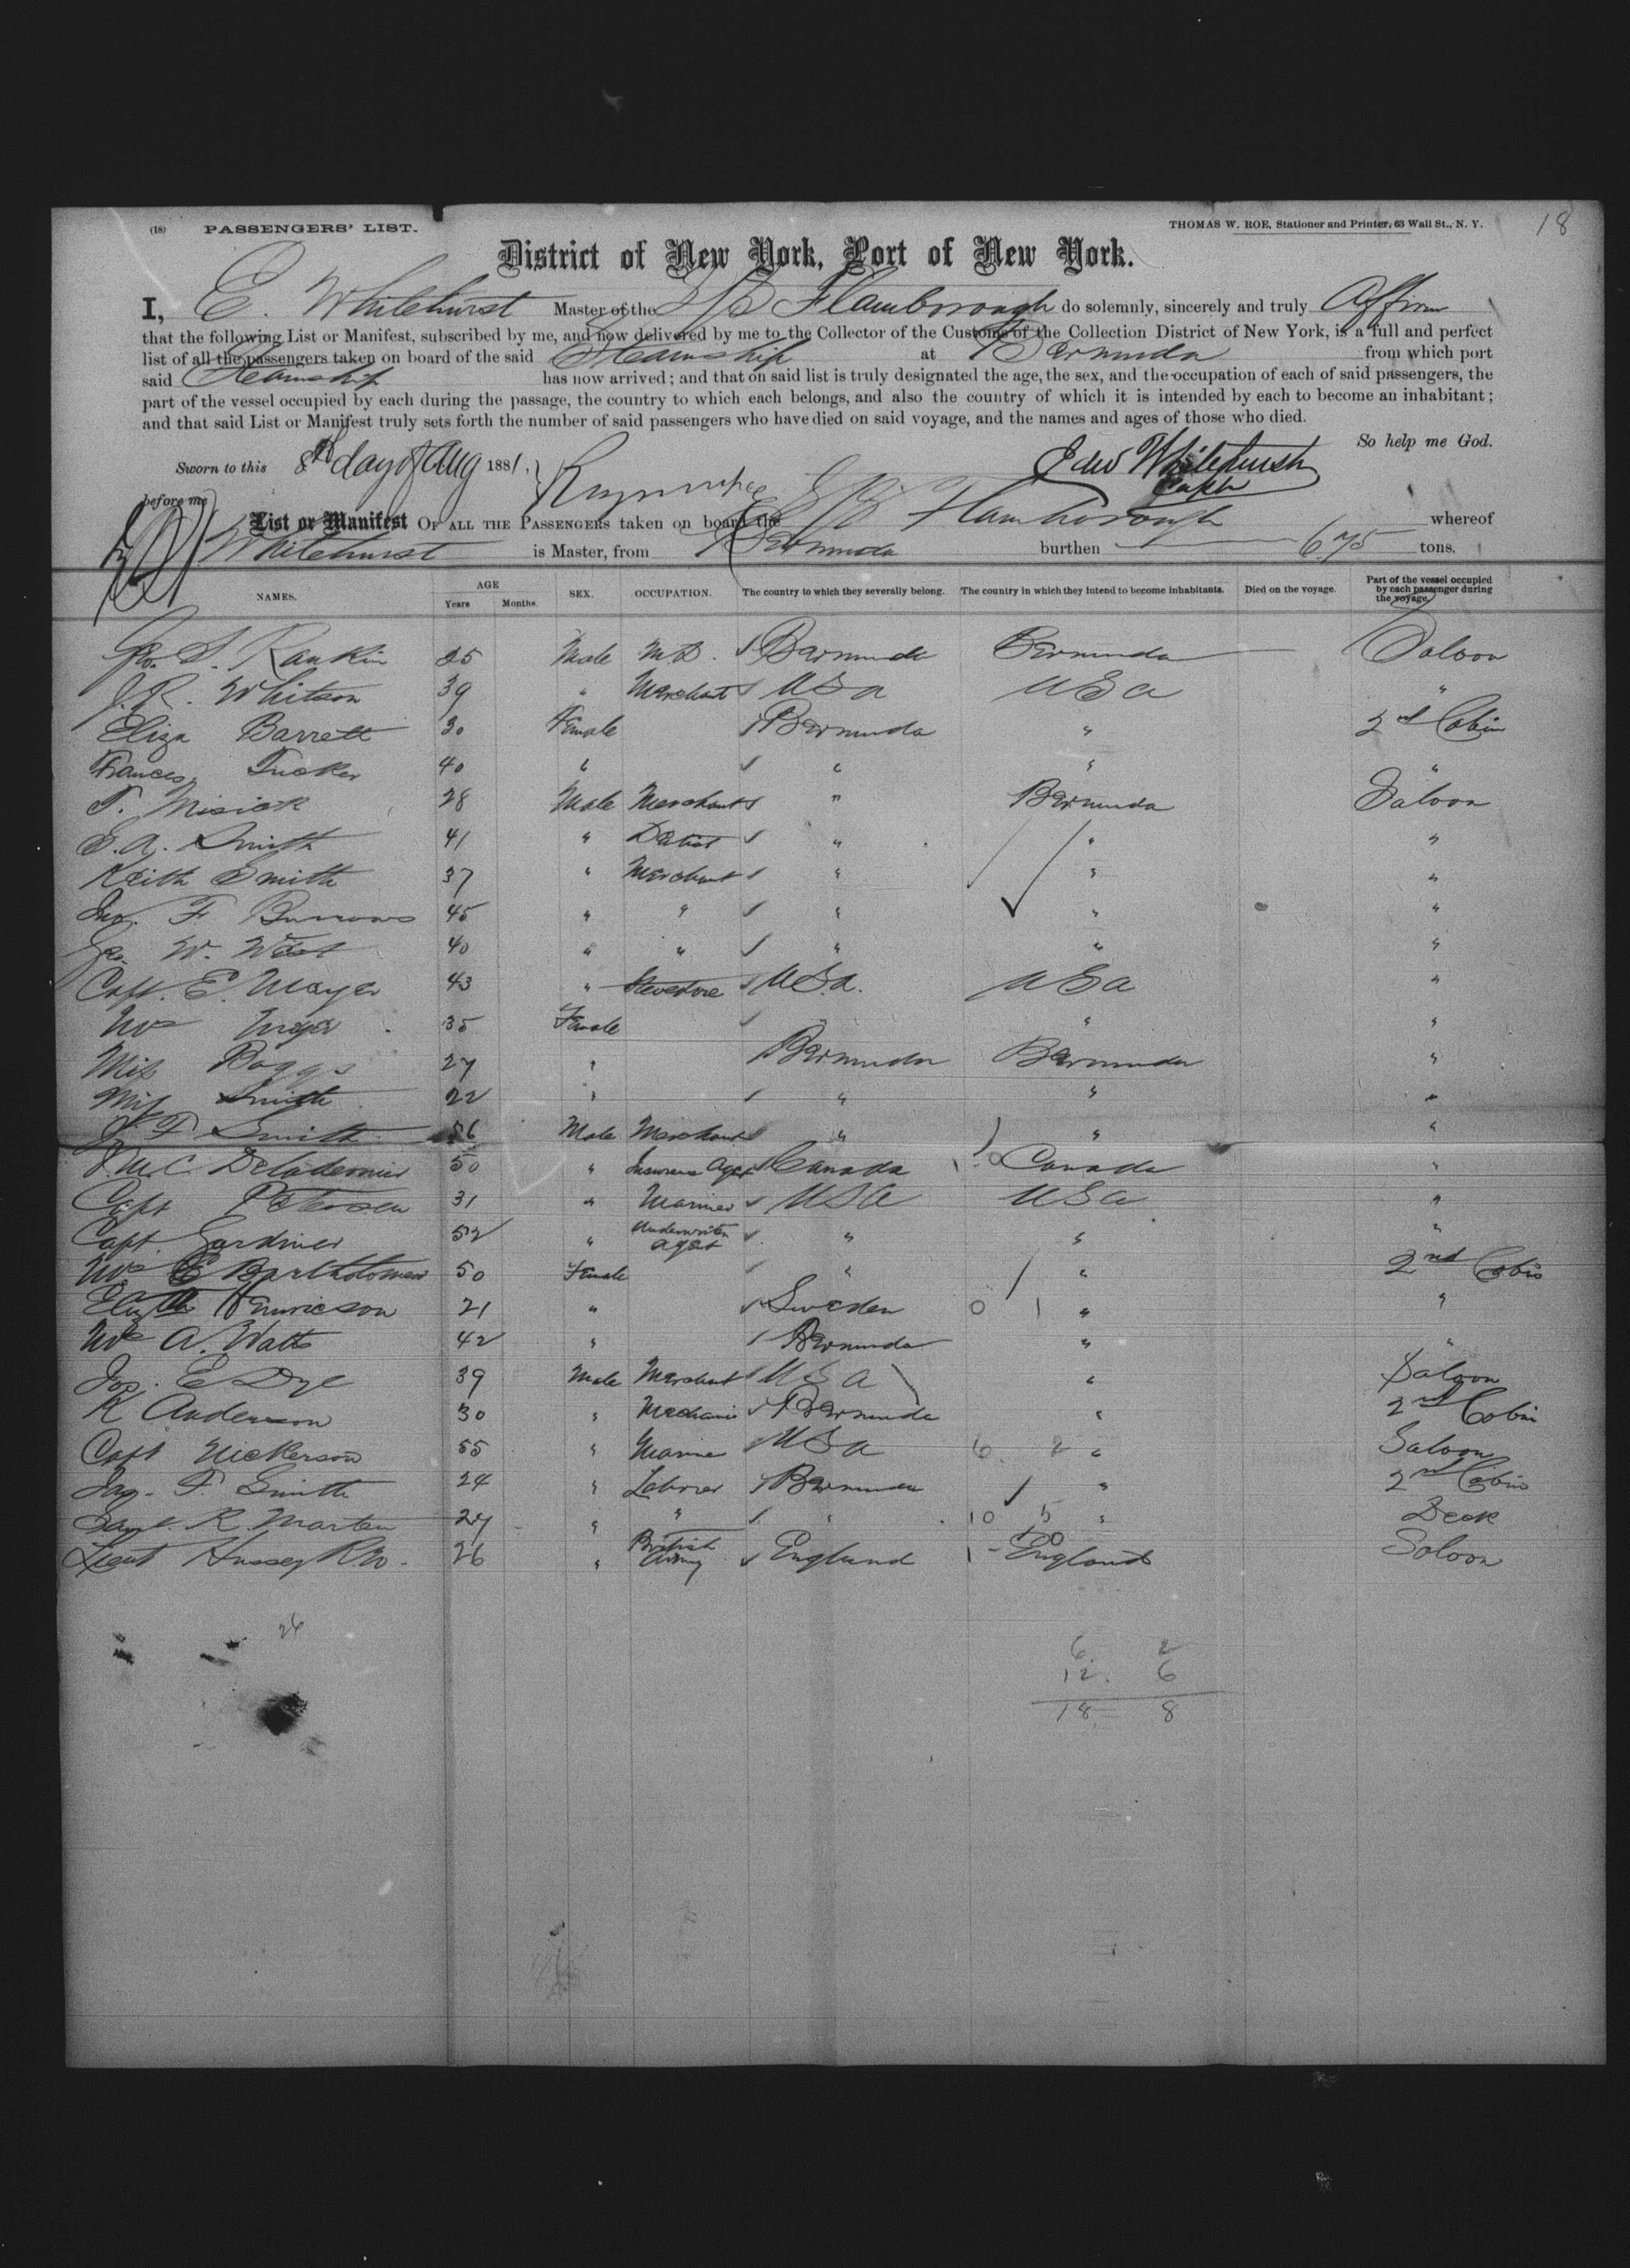 (18) PASSENGERS' LIST. THOMAS W. ROE, Stationer and Printer, 63 Wall St., N. Y. 18
District of New York, Port of New York.
I, E. Whitehurst Master of the S/S Flamborough do solemnly, sincerely and truly Affirm
that the following List or Manifest, subscribed by me, and now delivered by me to the Collector of the Customs of the Collection District of New York, is a full and perfect
list of all the passengers taken on board of the said Steamship at Bermuda from which port
said Steamship has now arrived; and that on said list is truly designated the age, the sex, and the occupation of each of said passengers, the
part of the vessel occupied by each during the passage, the country to which each belongs, and also the country of which it is intended by each to become an inhabitant;
and that said List or Manifest truly sets forth the number of said passengers who have died on said voyage, and the names and ages of those who died.
So help me God.
Sworn to this 8th day of Aug 1881, Edw Whitehurst
before me Capt
List or Manifest OF ALL THE PASSENGERS taken on board the S/S Flamborough whereof
Whitehurst is Master, from Bermuda burthen 675 tons.
NAMES. AGE Years Months. SEX. OCCUPATION. The country to which they severally belong. The country in which they intend to become inhabitants. Died on the voyage. Part of the vessel occupied by each passenger during the voyage.
Geo. S. Rankin 25 Male M.D. Bermuda Bermuda Saloon
J. R. Whitson 39 " Merchant USA USA "
Eliza Barrett 30 Female Bermuda " 2nd Cabin
Frances Tucker 40 " " " "
T. Misick 28 Male Merchant " Bermuda Saloon
E. A. Smith 41 " " " "
Keith Smith 37 " Merchant " " "
Jno. F Burrows 45 " " " " "
Geo. W. West 40 " " " " "
Capt. E. Mayer 43 " Stevedore U.S.A. USA "
Mrs Mayer 35 Female " " "
Miss Boggs 27 " Bermuda Bermuda "
Miss Smith 22 " " " "
F Smith 56 Male Merchant " " "
50 " Insurance Agent Canada Canada "
Capt Peterson 31 " Mariner USA USA "
Capt. Gardiner 52 " Underwriters Agent " " "
Mrs E Bartholomew 50 Female " " 2nd Cabin
Henricson 21 " Sweden 0 1 " "
Mrs A. Watts 42 " Bermuda " "
Jos. E Dye 39 Male Merchant USA " Saloon
K Anderson 30 " Mechanic Bermuda " 2nd Cabin
Capt Nickerson 55 " Marine USA 6 2 " Saloon
Jas. F. Smith 24 " Laborer Bermuda " 2nd Cabin
Saml. R. Marten 27 " " " 10 5 " Deck
Lieut Hussey 26 " British Army England England Saloon
26
6 2
12. 6
18 8